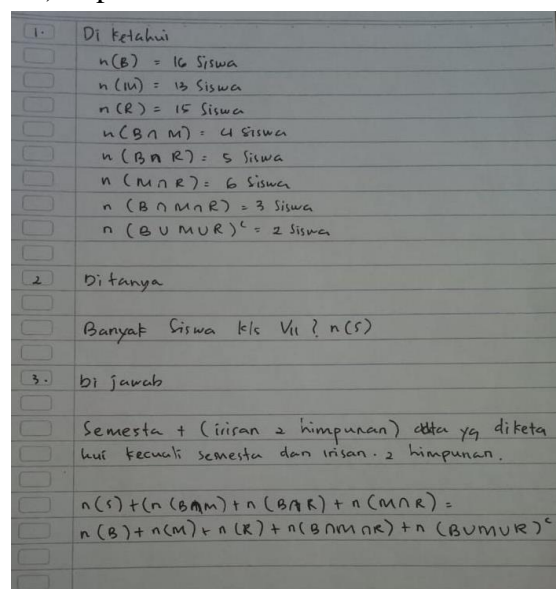 1. Di ketahui
n(B) = 16 Siswa
n(M) = 13 Siswa
n(R) = 15 Siswa
n(B ∩ M) = 4 siswa
n(B ∩ R) = 5 Siswa
n (M ∩ R) = 6 Siswa
n (B ∩ M ∩ R) = 3 Siswa
n (B ∪ M ∪ R)ᶜ = 2 Siswa
2 Ditanya
Banyak Siswa kls VII ? n(S)
3. Di jawab
Semesta + (irisan 2 himpunan) yg diketa
hui kecuali semesta dan irisan. 2 himpunan.
n(S) + (n (B∩M) + n (B∩R) + n (M∩R) =
n(B) + n(M) + n (R) + n(B∩M∩R) + n (B∪M∪R)ᶜ